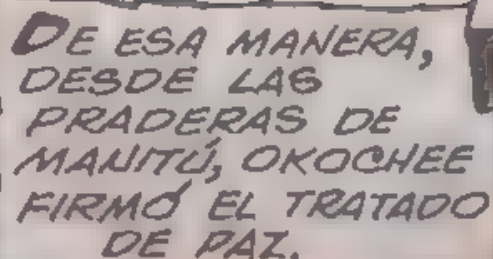 DE ESA MANERA,
DESDE LAS
PRADERAS DE
MANITÚ, OKOCHEE
FIRMÓ EL TRATADO
DE PAZ.